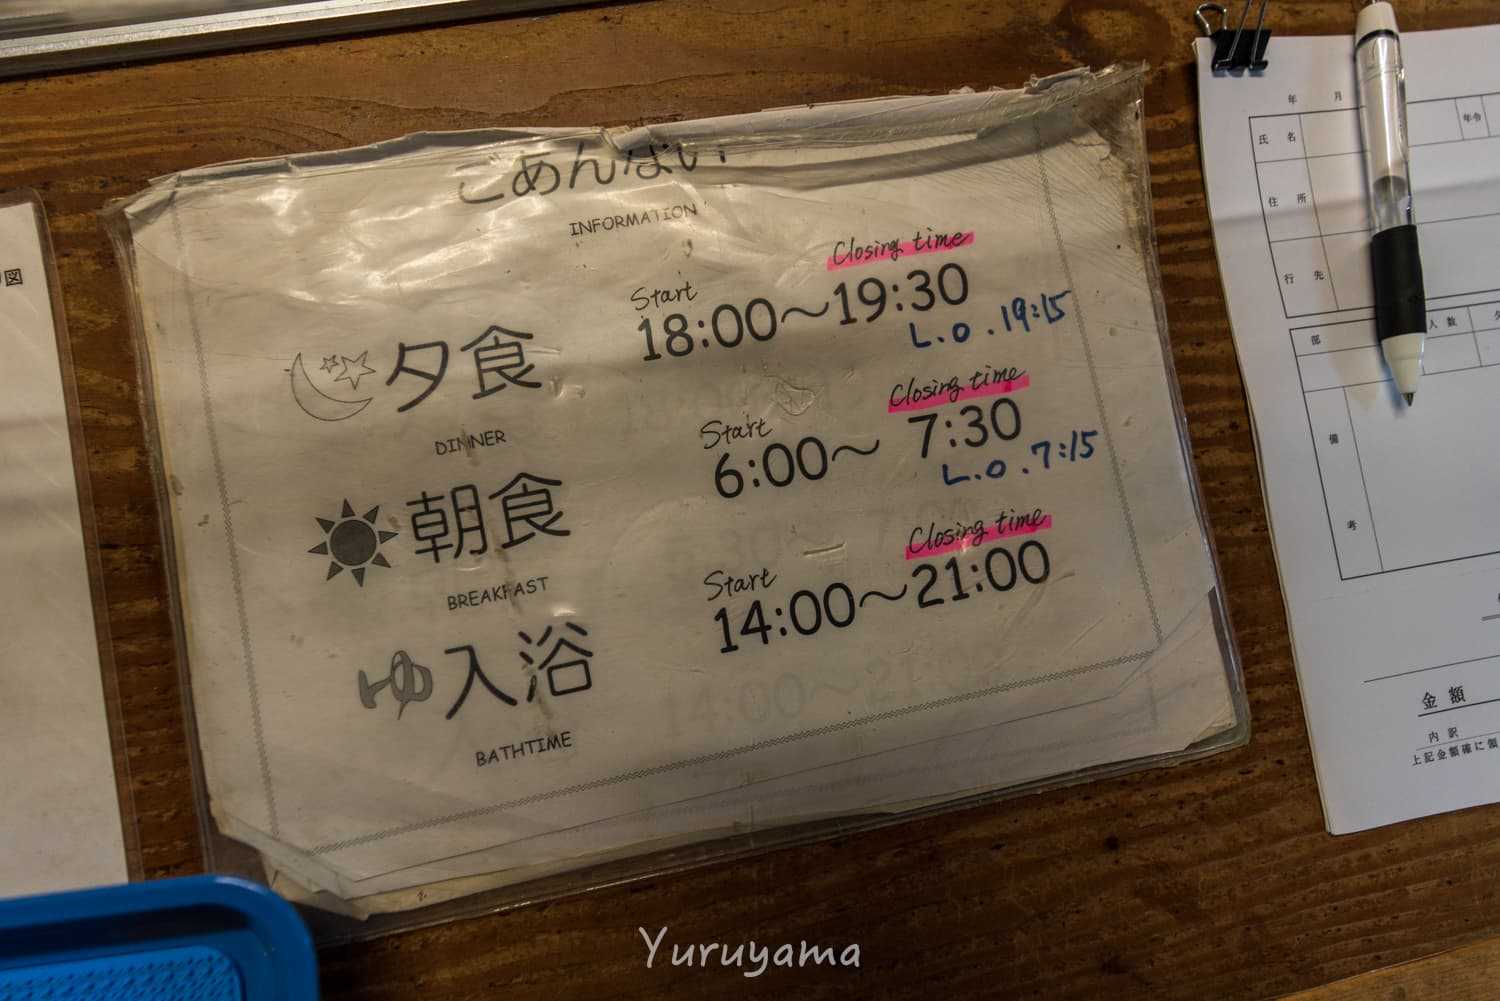 ごあんない
INFORMATION
Closing time
Start
夕食 18:00～19:30
L.O.19:15
DINNER
Closing time
Start
朝食 6:00～7:30
L.O.7:15
BREAKFAST
Closing time
Start
ゆ入浴 14:00～21:00
BATHTIME
図
年 月
氏名
年令
住所
行先
部
人数
備
考
金額
内訳
上記金額確に領
Yuruyama